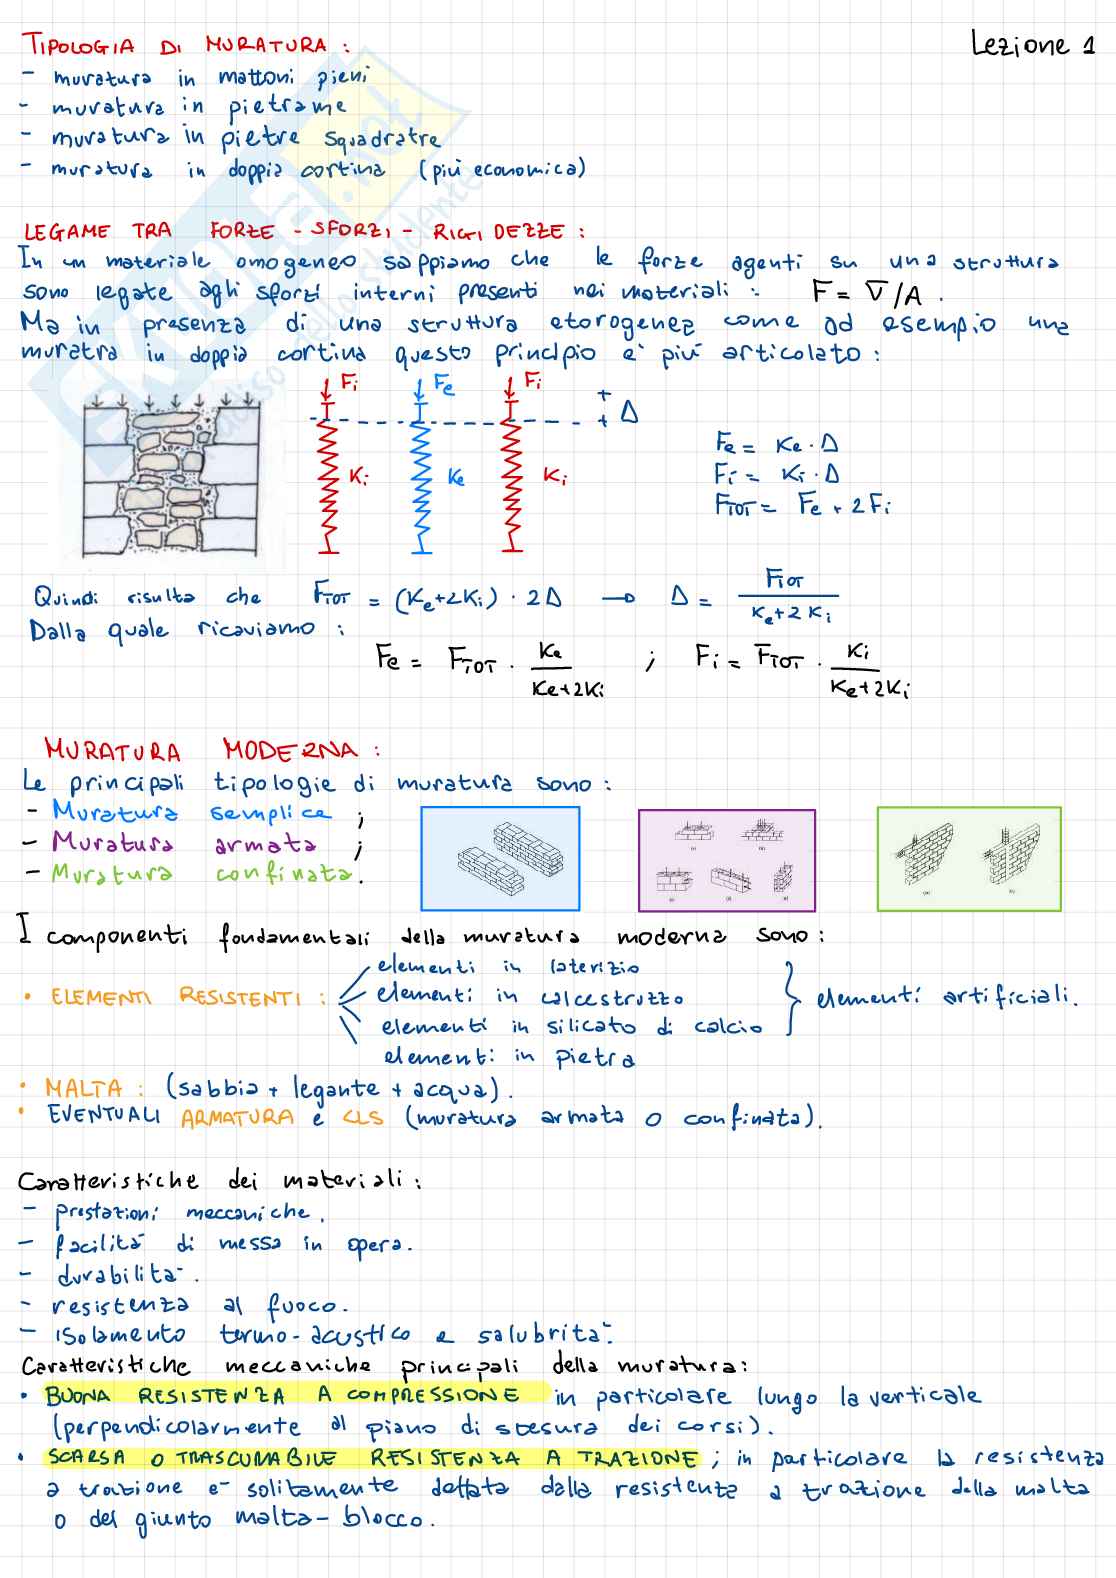 Lezione 1
TIPOLOGIA DI MURATURA :
- muratura in mattoni pieni
- muratura in pietrame
- muratura in pietre squadratre
- muratura in doppia cortina (più economica)
LEGAME TRA FORZE - SFORZI - RIGIDEZZE :
In un materiale omogeneo sappiamo che le forze agenti su una struttura
sono legate agli sforzi interni presenti nei materiali : F = σ/A .
Ma in presenza di una struttura etorogenea come ad esempio una
muratra in doppia cortina questo principio e' più articolato :
Fi Fe Fi
+ + Δ
Ki Ke Ki
Fe = Ke · Δ
Fi = Ki · Δ
FTOT = Fe + 2Fi
Quindi risulta che FTOT = (Ke+2Ki) · 2Δ → Δ = FTOT / Ke+2Ki
Dalla quale ricaviamo :
Fe = FTOT · Ke / Ke+2Ki ; Fi = FTOT · Ki / Ke+2Ki
MURATURA MODERNA :
Le principali tipologie di muratura sono :
- Muratura semplice ;
- Muratura armata ;
- Muratura confinata .
I componenti fondamentali della muratura moderna sono :
• ELEMENTI RESISTENTI :
elementi in laterizio
elementi in calcestruzzo
elementi in silicato di calcio
elementi artificiali .
elementi in pietra
• MALTA : (sabbia + legante + acqua) .
• EVENTUALI ARMATURA e CLS (muratura armata o confinata) .
Caratteristiche dei materiali :
- prestazioni meccaniche .
- facilità di messa in opera .
- durabilità .
- resistenza al fuoco .
- isolamento termo-acustico e salubrità .
Caratteristiche meccaniche principali della muratura :
• BUONA RESISTENZA A COMPRESSIONE in particolare lungo la verticale
(perpendicolarmente al piano di stesura dei corsi) .
• SCARSA O TRASCURABILE RESISTENZA A TRAZIONE ; in particolare la resistenza
a trazione è solitamente dettata dalla resistenza a trazione della malta
o del giunto malta-blocco .